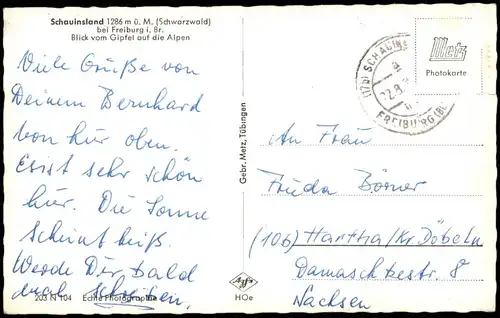 Schauinsland 1286 m ü. M. (Schwarzwald)
bei Freiburg i. Br.
Blick vom Gipfel auf die Alpen
Viele Grüße von
Deinem Bernhard
von hier oben.
Es ist sehr schön
hier. Die Sonne
scheint heiß.
Werde Dir bald
mal schreiben.
203 N 104 Echte Photographie
Gebr. Metz, Tübingen
Agfa
HOe
(17b) SCHAUINS
a
22.8.
FREIBURG (BR
Metz
Photokarte
An Frau
Frieda Börner
(10b) Hartha/Kr. Döbeln
Damaschkestr. 8
Sachsen